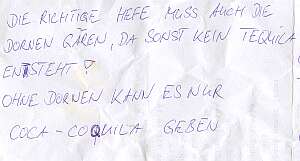 DIE RICHTIGE HEFE MUSS AUCH DIE
DORNEN GÄREN, DA SONST KEIN TEQUILA
ENTSTEHT!
OHNE DORNEN KANN ES NUR
COCA-COQUILA GEBEN